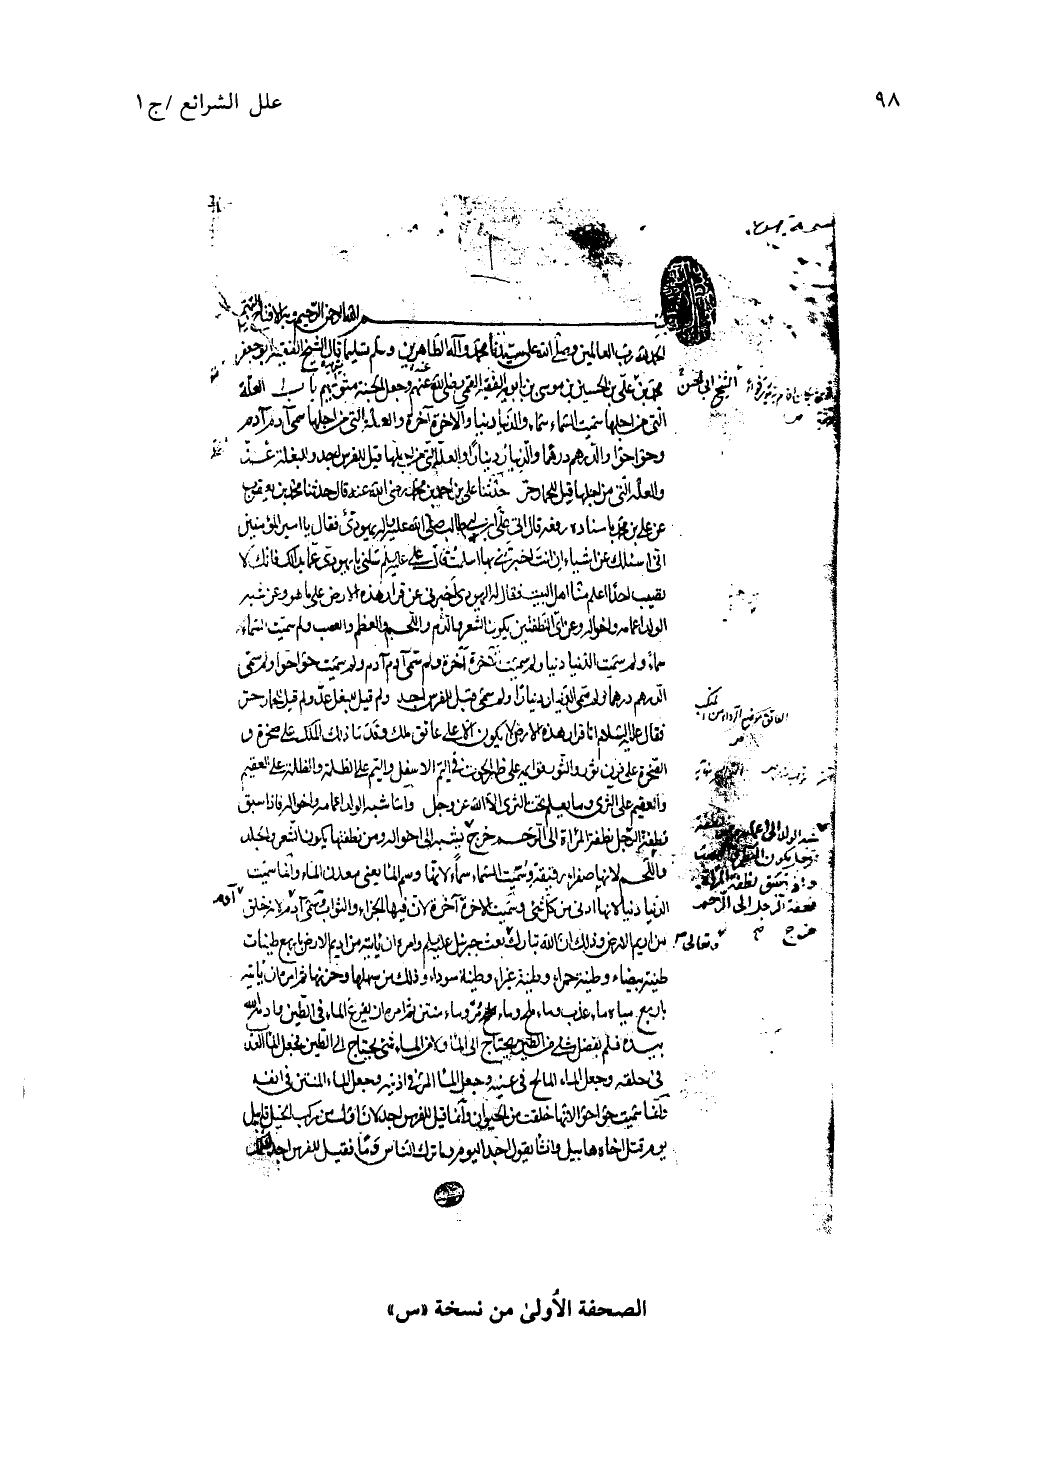 ٩٨
علل الشرائع /ج١
بسم الله الرحمن الرحيم وبه الافتتاح
الحمد لله رب العالمين وصلى الله على سيدنا محمد وآله الطاهرين وسلم تسليما قال الشيخ الفقيه ابو جعفر
محمد بن علي بن الحسين بن موسى بن بابويه الفقيه القمي رضي الله عنهم وجعل الجنة باب العلة
التي من اجلها سميت السماء سماء والدنيا دنيا والآخرة آخرة والعلة التي من اجلها سمى آدم آدم
وحوا حوا والدرهم درهما والدينار دينارا والعلة التي من اجلها قيل للفرس اجد وللبغلة عد
والعلة التي من اجلها قيل للحمار حر حدثنا علي بن احمد بن محمد رضي الله عنه قال حدثنا محمد بن يعقوب
عن علي بن محمد باسناده رفعه قال اتى علي بن ابي طالب صلى الله عليه يهودي فقال يا امير المؤمنين
اني اسئلك عن اشياء ان انت اخبرتني بها اسلمت قال علي عليه سلم سلني يا يهودي عما بدا لك فانك لا
تصيب احدا اعلم منا اهل البيت فقال له اليهودي اخبرني عن قرار هذه الارض على ما هو وعن شبه
الولد اعمامه واخواله وعن اي النطفتين يكون الشعر والدم واللحم والعظم والعصب ولم سميت السماء
سماء ولم سميت الدنيا دنيا ولم سميت الآخرة آخرة ولم سمى آدم آدم ولم سميت حوا حوا ولم سمى
الدرهم درهما ولم سمى الدينار دينارا ولم قيل للفرس اجد ولم قيل للبغل عد ولم قيل للحمار حر
فقال عليه السلام اما قرار هذه الارض لا يكون الا على عاتق ملك وقدما ذلك الملك على صخرة و
الصخرة على قرن ثور والثور قوايمه على ظهر الحوت في اليم الاسفل واليم على الظلمة والظلمة على العقيم
والعقيم على الثرى وما يعلم تحت الثرى الا الله عز وجل واما شبه الولد اعمامه واخواله فاذا سبق
نطفة الرجل نطفة المراة الى الرحم خرج يشبه الى اخواله ومن نطفتها يكون الشعر والجلد
واللحم لانها صفراء رقيقة وسميت السماء سماء لانها وسم الماء يعني معدن الماء وانما سميت
الدنيا دنيا لانها ادنى من كل شيء وسميت الاخرة آخرة لان فيها الجزاء والثواب وسمى آدم لانه خلق
من اديم الارض وذلك ان الله تبارك بعث جبرئيل عليه سلم وامره ان ياتيه من اديم الارض باربع طينات
طينة بيضاء وطينة حمراء وطينة غبراء وطينة سوداء وذلك من سهلها وحزنها ثم امره ان ياتيه
باربع مياه ماء عذب وماء ملح وماء مر وماء منتن ثم امره ان يفرغ الماء في الطين وادمه الله
بيده فلم يفضل شيء من الطين يحتاج الى الماء ولا من الماء شيء يحتاج الى الطين فجعل الماء العذب
في حلقه وجعل الماء المالح في عينيه وجعل الماء المر في اذنيه وجعل الماء المنتن في انفه
وانما سميت حوا حوا لانها خلقت من الحيوان وانما قيل للفرس اجد لان اول من ركب الخيل قابيل
يوم قتل اخاه هابيل وانشا يقول اجد اليوم وما ترك الناس دما فقيل للفرس اجد
الشيخ ابي الحسن
العاتق موضع الرداء من المنكب
شبه الولد الى اعمامه
نطفة المراة
الرجل الى الرحم
خرج
وتعالى
آدم
الصحفة الأولىٰ من نسخة «س»